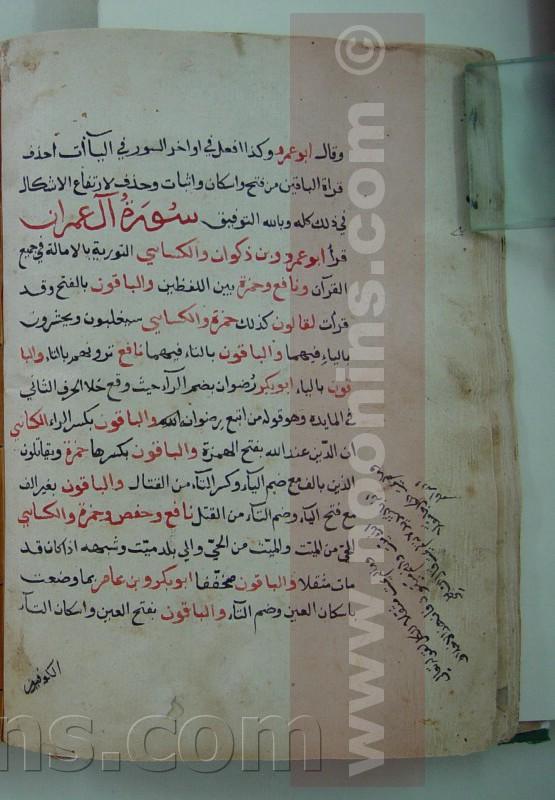 وقال ابو عمرو وكذا افعل في اواخر السور في الياآت احذف
قراة الباقين من فتح واسكان واثبات وحذف لارتفاع الاشكال
في ذلك كله وبالله التوفيق سورة آل عمران
قرأ ابو عمرو وبن ذكوان والكسايي التورية بالامالة في جميع
القرآن ونافع وحمزة بين اللفظين والباقون بالفتح وقد
قرأت لقالون كذلك حمزة والكسايي سيغلبون ويحشرون
بالياء فيهما والباقون بالتاء فيهما نافع ترونهم بالتاء والبا
قون بالياء ابوبكر رضوان بضم الرآء حيث وقع خلا الحرف الثاني
في المايده وهو قوله من اتبع رضوان الله والباقون بكسر الراء الكسايي
ان الدين عند الله بفتح الهمزة والباقون بكسرها حمزة ويقاتلون
الذين بالف مع ضم اليآء وكسر التآء من القتال والباقون بغير الف
مع فتح اليآء وضم التآء من القتل نافع وحفص وحمزة والكسايي
الحي من الميّت والميّت من الحيّ والي بلد ميّت وشبهه اذا كان قد
مات مثقلا والباقون مخففا ابوبكر وبن عامر بما وضعت
باسكان العين وضم التاء والباقون بفتح العين واسكان التآء
الكوفيون
www.noonins.com ©
ns.com